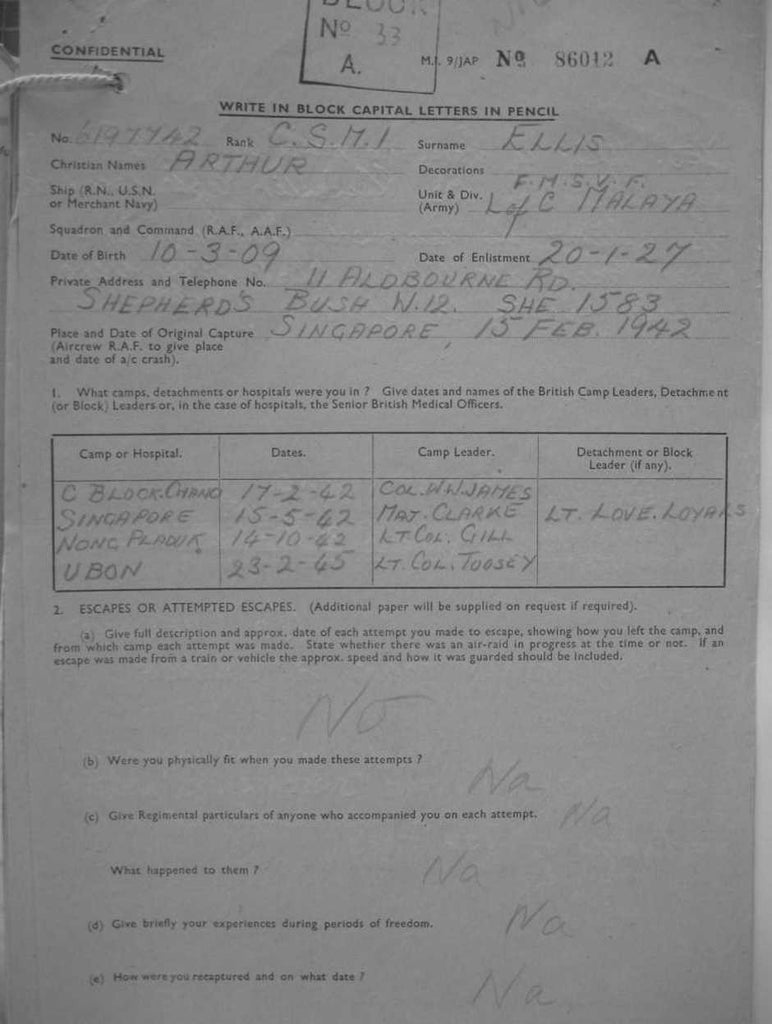 BLOCK
Nº 33
A.
CONFIDENTIAL
M.I. 9/JAP Nº 86012 A
WRITE IN BLOCK CAPITAL LETTERS IN PENCIL
No. 6197742 Rank C.S.M.I Surname ELLIS
Christian Names ARTHUR Decorations
Ship (R.N., U.S.N. or Merchant Navy) Unit & Div. (Army) F.M.S.V.F. L of C MALAYA
Squadron and Command (R.A.F., A.A.F.)
Date of Birth 10-3-09 Date of Enlistment 20-1-27
Private Address and Telephone No. 11 ALDBOURNE RD.
SHEPHERD'S BUSH W.12. SHE 1583
Place and Date of Original Capture SINGAPORE 15 FEB. 1942
(Aircrew R.A.F. to give place
and date of a/c crash).
1. What camps, detachments or hospitals were you in ? Give dates and names of the British Camp Leaders, Detachment
(or Block) Leaders or, in the case of hospitals, the Senior British Medical Officers.
Camp or Hospital. Dates. Camp Leader. Detachment or Block Leader (if any).
C BLOCK. CHANG 17-2-42 COL. W.W. JAMES
SINGAPORE 15-5-42 MAJ. CLARKE LT. LOVE. LOYALS
NONG PLADUK 14-10-42 LT COL. GILL
UBON 23-2-45 LT. COL. TOOSEY
2. ESCAPES OR ATTEMPTED ESCAPES. (Additional paper will be supplied on request if required).
(a) Give full description and approx. date of each attempt you made to escape, showing how you left the camp, and
from which camp each attempt was made. State whether there was an air-raid in progress at the time or not. If an
escape was made from a train or vehicle the approx. speed and how it was guarded should be included.
No
(b) Were you physically fit when you made these attempts ?
Na
(c) Give Regimental particulars of anyone who accompanied you on each attempt. Na
What happened to them ? Na
(d) Give briefly your experiences during periods of freedom. Na
(e) How were you recaptured and on what date ? Na